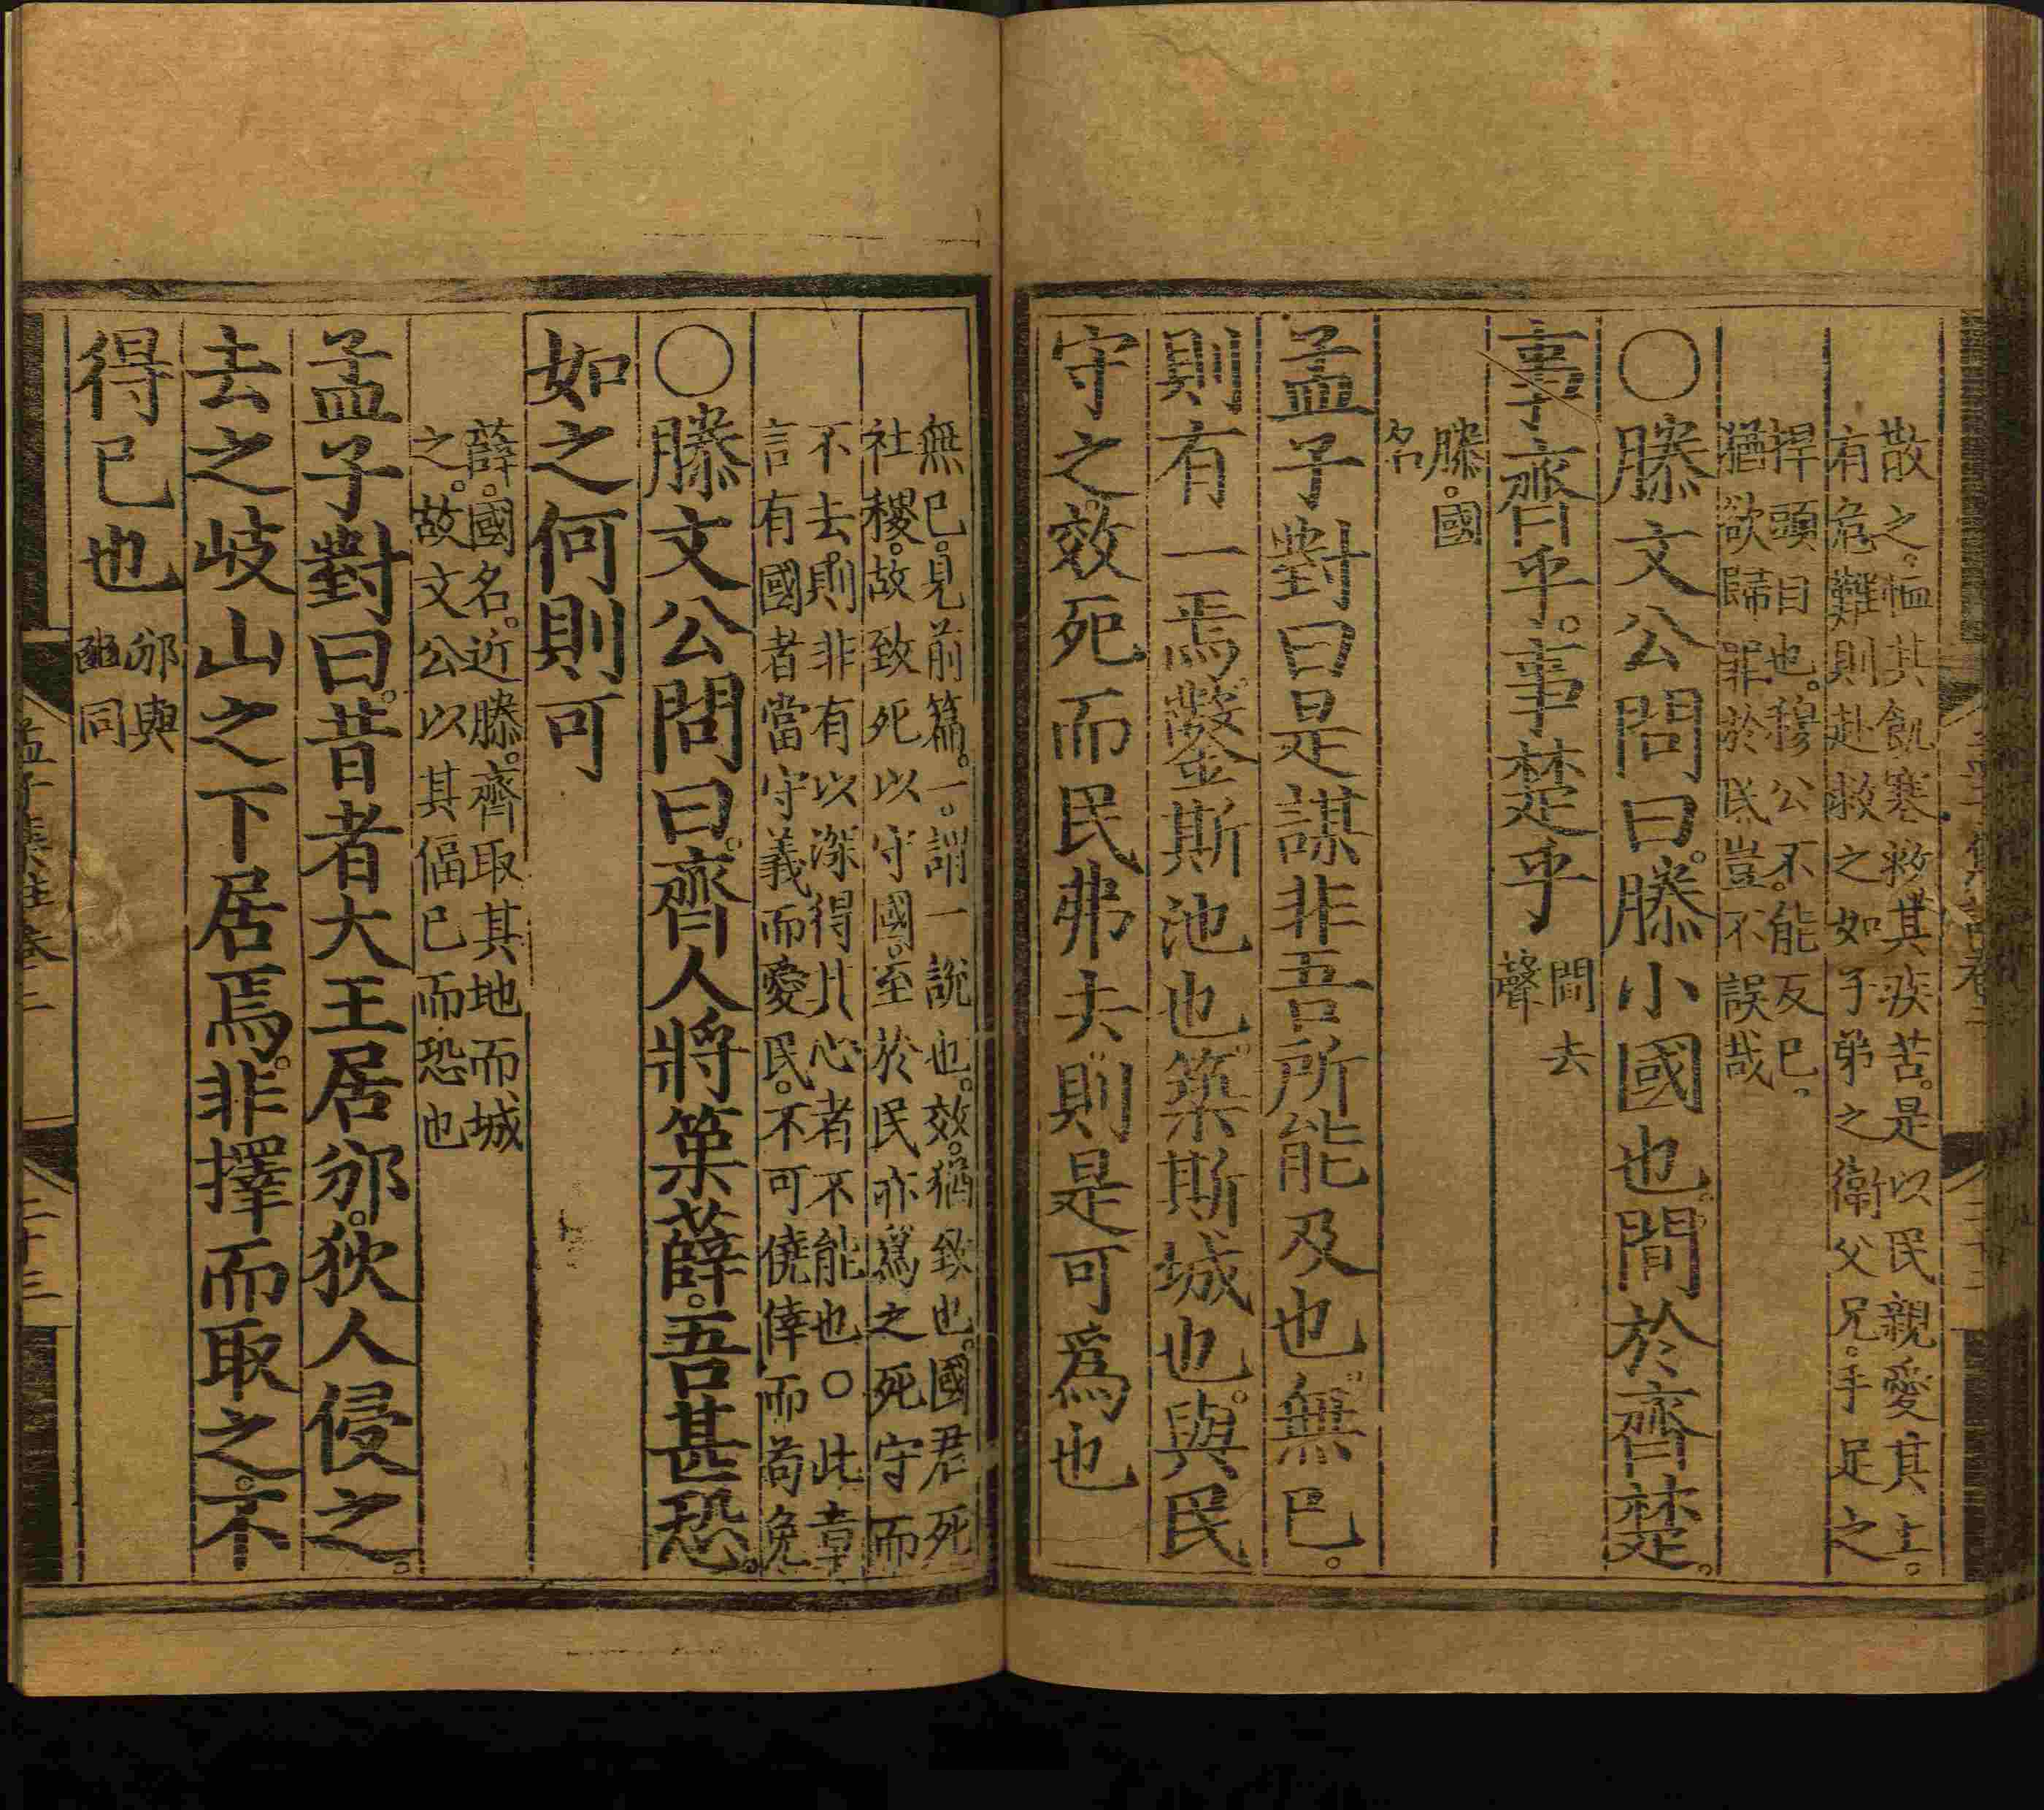 散之。恤其飢寒。救其疾苦。是以民親愛其上。
有危難則赴救之。如子弟之衛父兄。手足之
捍頭目也。穆公不能反已。
猶欲歸罪於民。豈不誤哉
○滕文公問曰。滕小國也。間於齊楚。
事齊乎。事楚乎
間去
聲
滕。國
名
孟子對曰是謀非吾所能及也。無已。
則有一焉。鑿斯池也。築斯城也。與民
守之。效死而民弗去。則是可爲也
無已。見前篇。一。謂一說也。效。猶致也。國君死
社稷。故致死以守國。至於民亦爲之死守而
不去。則非有以深得其心者不能也○此章
言有國者當守義而愛民。不可僥倖而苟免
○滕文公問曰。齊人將築薛。吾甚恐。
如之何則可
薛。國名。近滕。齊取其地而城
之。故文公以其偪已而恐也
孟子對曰。昔者大王居邠。狄人侵之。
去之岐山之下居焉。非擇而取之。不
得已也
邠與
豳同
孟子集註卷二
二十三